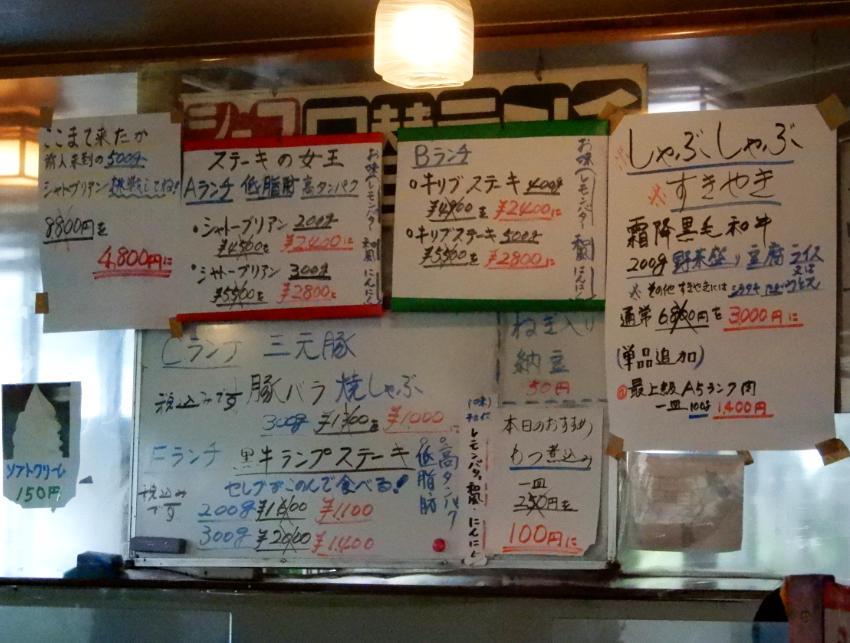 ここまで来たか
前人未到の500g
シャトブリアン挑戦してね!
8800円を
4,800円に
ステーキの女王
Aランチ 低脂肪 高タンパク
・シャトーブリアン 200g
¥4500を ¥2400に
・シャトーブリアン 300g
¥5500を ¥2800に
お味(レモンバター 和風 にんにく)
Bランチ
・リブステーキ 400g
¥4900を ¥2400に
・リブステーキ 500g
¥5500を ¥2800に
お味(レモンバター 和風 にんにく)
※しゃぶしゃぶ
※すきやき
霜降黒毛和牛
200g 野菜盛り 豆腐 ライス
又は
うどん
※その他すきやきには
通常6,800円を 3,000円に
(単品追加)
最上級A5ランク肉
一皿100g 1,400円に
Cランチ 三元豚
税込みです 豚バラ焼しゃぶ
300g ¥1300を ¥1000に
Fランチ 黒牛ランプステーキ
高タンパク
低脂肪
税込みです
セレブがこのんで食べる!
200g ¥1600 ¥1,100
300g ¥2000 ¥1,400
レモンバター、和風・にんにく
ねぎ入り
納豆
50円
本日のおすすめ
もつ煮込み
一皿
250円を
100円に
ソフトクリーム
150円